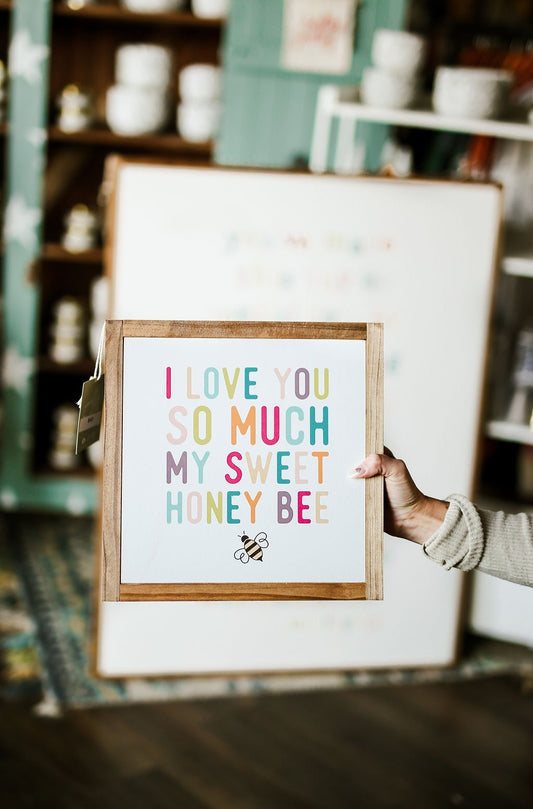 I LOVE YOU
SO MUCH
MY SWEET
HONEY BEE